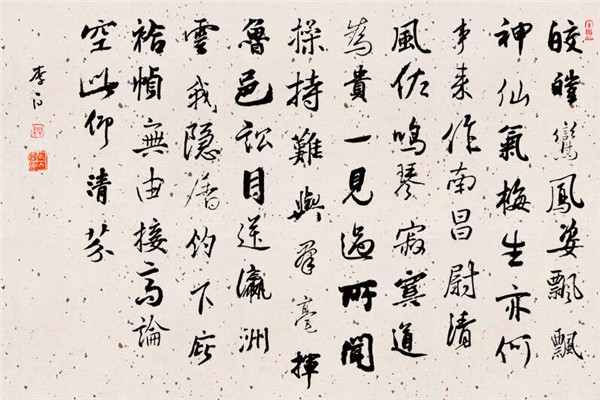 皎皎鸞鳳姿飄飄
神仙氣梅生亦何
事来作南昌尉清
風佐鳴琴寂寞道
為貴一見過所聞
操持難與群毫揮
魯邑訟目送瀛洲
雲我隱屠釣下
無由接高論
空此仰清芬
李白